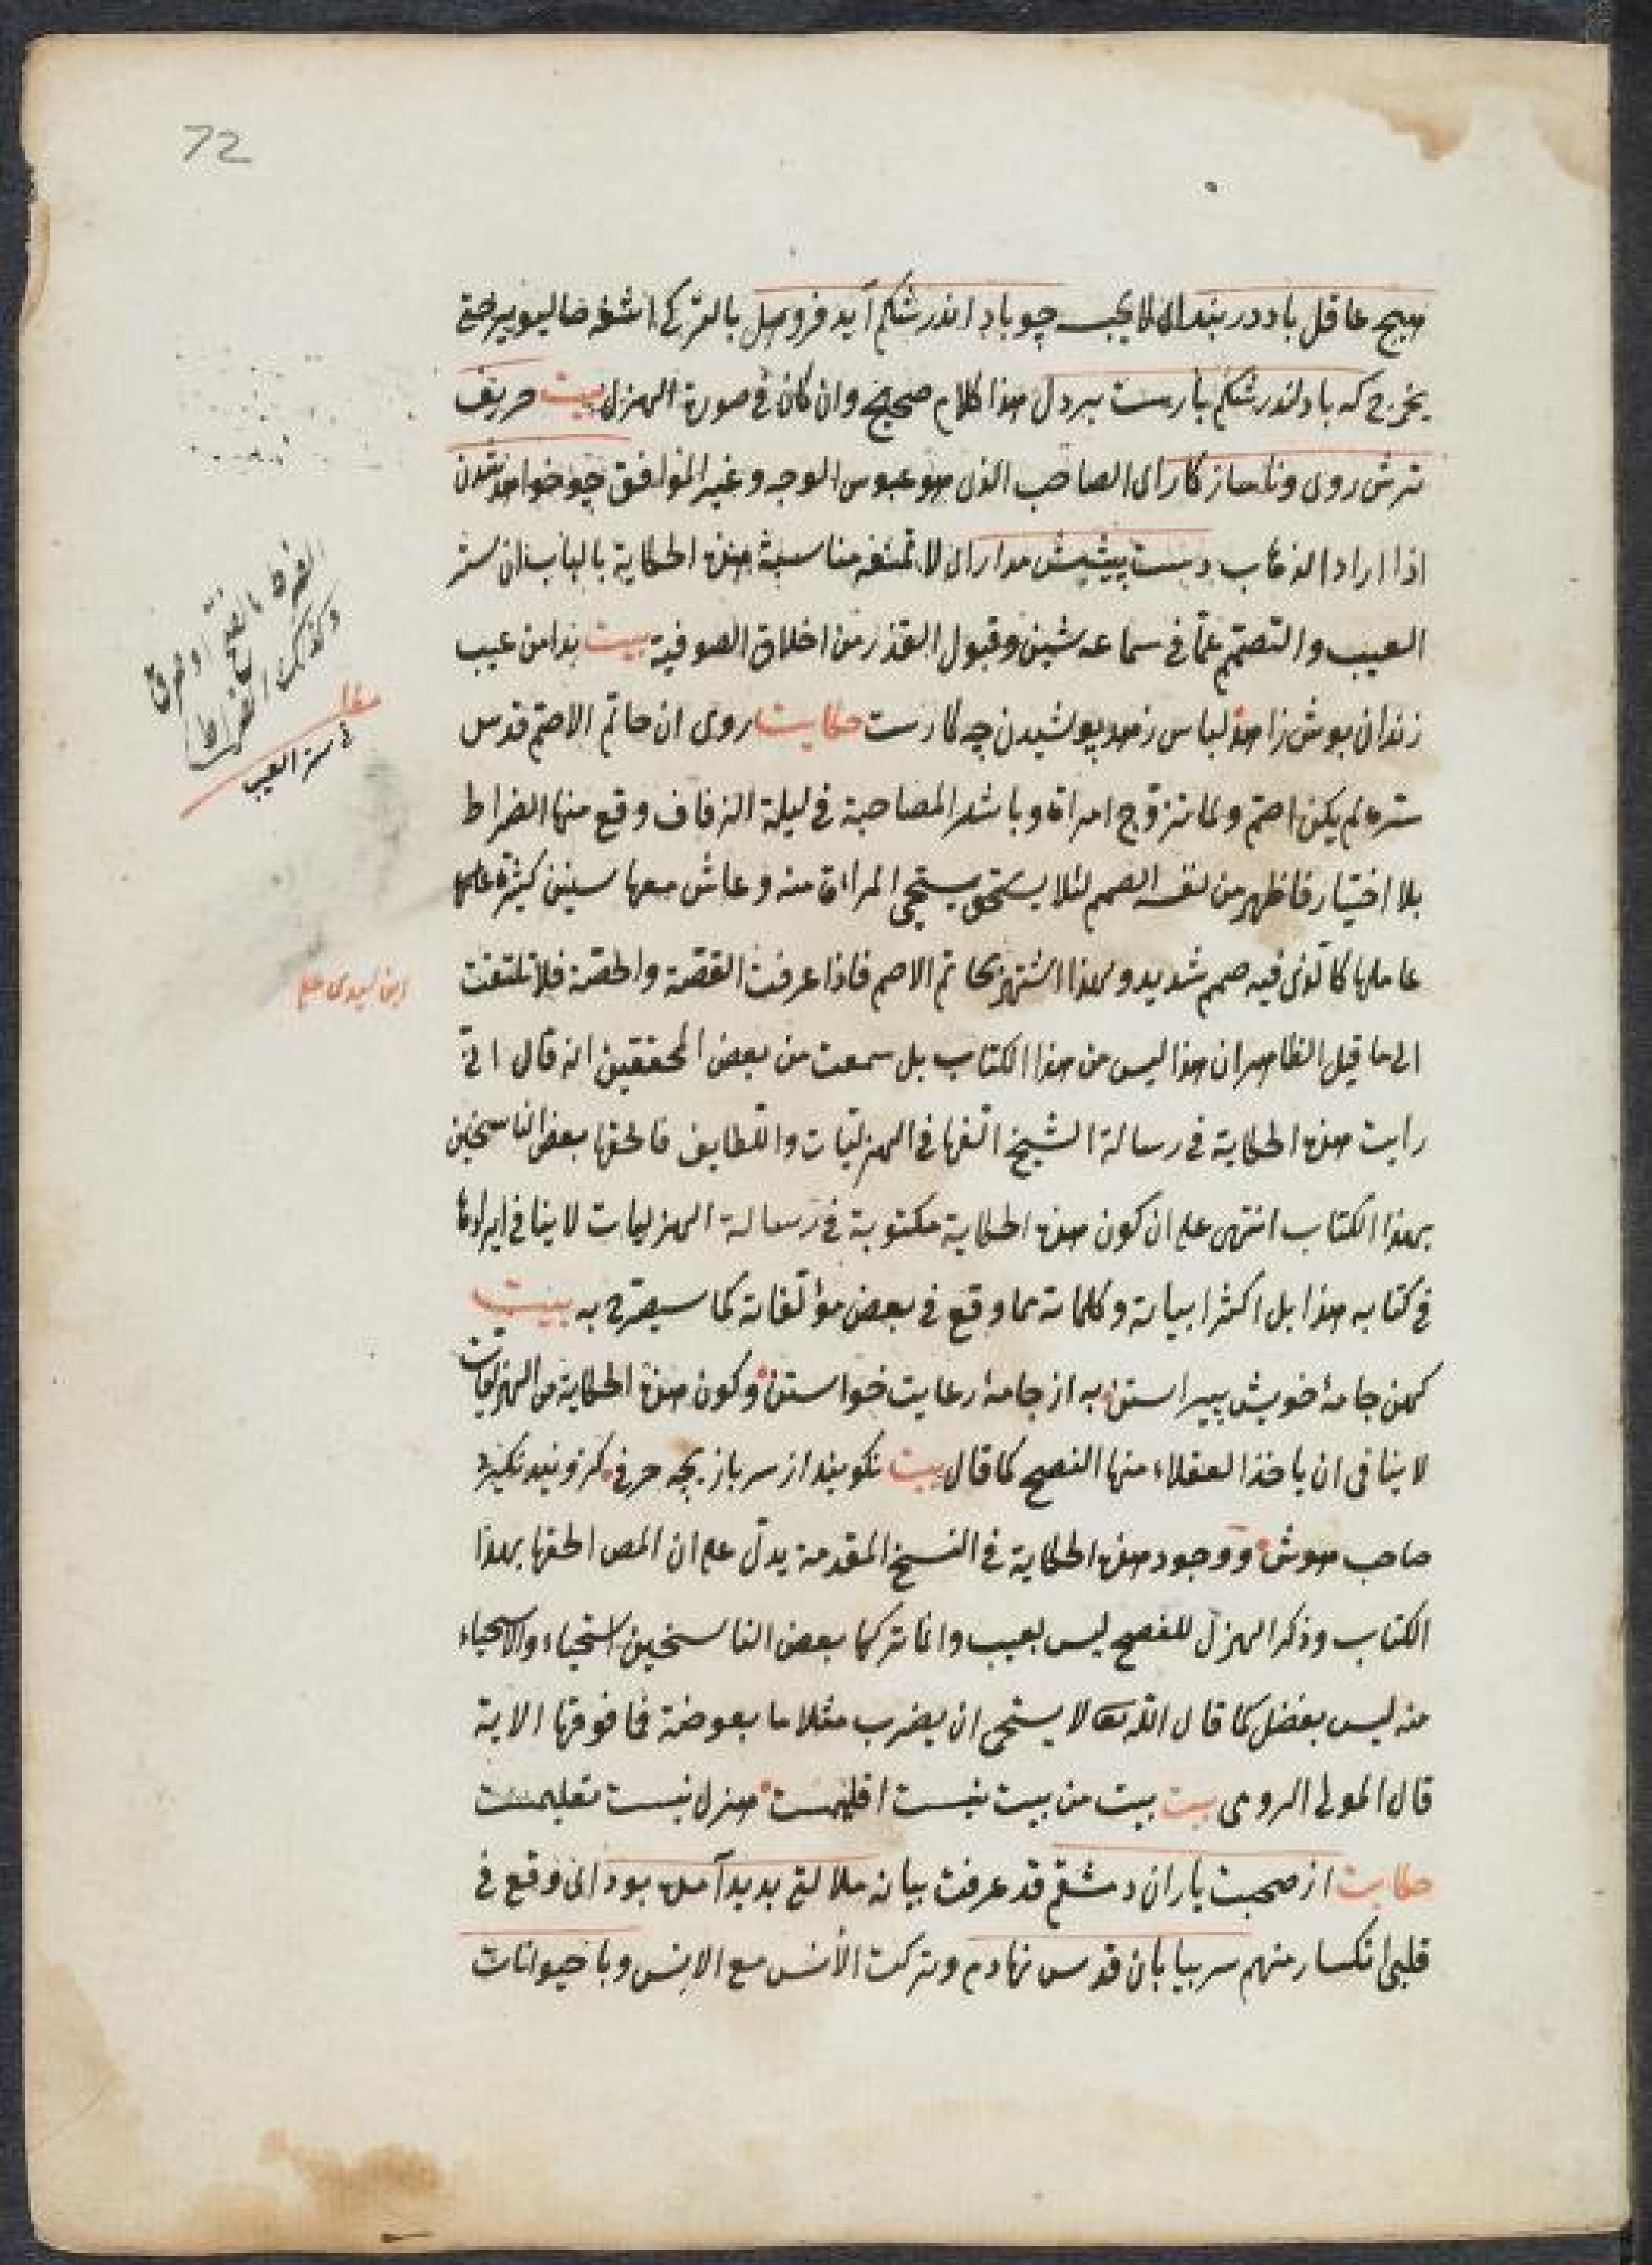 72
هيچ عاقل باد در بند اى لا يحبس چو باد اندر شكم آيد فروهل بالتركى اشغه صاليوير حتى
يخرج كه باد اندر شكم بارست بر دل هذا كلام صحيح وان كان فى صورة الهزل بيت حريف
ترش روى وناساز كار اى الصاحب الذى هو عبوس الوجه وغير الموافق چو خواهد شدن
اذا اراد الذهاب دست پيشش مدار اى لا تمنعه مناسبة هذه الحكاية بالباب ان ستر
العيب والتصمم عما فى سماعه شين وقبول العذر من اخلاق الصوفية بيت بدامن عيب
رندان پوش زاهد لباس زهد پوشيدن چه كارست حكايت روى ان حاتم الاصم قدس
سره لم يكن اصم ولما تزوج امراة وباشر المصاحبة فى ليلة الزفاف وقع منها الضراط
بلا اختيار فاظهر من نفسه الصمم لئلا يستحى المراة منه وعاش معها سنين كثيرة
عاملها كالذى فيه صمم شديد ولهذا اشتهر بحاتم الاصم فاذا عرفت القصة والحصة فلا تلتفت
الى ما قيل الظاهر ان هذا ليس من هذا الكتاب بل سمعت من بعض المحققين انه قال انى
رايت هذه الحكاية فى رسالة الشيخ الفها فى الهزليات واللطايف فالحقها بعض الناسخين
بهذا الكتاب انتهى على ان كون هذه الحكاية مكتوبة فى رسالة الهزليات لا ينافى ايرادها
فى كتابه هذا بل اكثر ابياته وكلماته مما وقع فى بعض مؤلفاته كما سيصرح به بيت
كهن جامۀ خويش پيراستن به از جامۀ رعايت خواستن وكون هذه الحكاية من الهزليات
لا ينافى ان ياخذ العقلاء منها النصح كما قال بيت نكويند از سر بازيچه حرفى كزو پند نكيرد
صاحب هوش ووجود هذه الحكاية فى النسخ المقدمة يدل على ان المص الحقها بهذا
الكتاب وذكر الهزل للنصح ليس بعيب وانما تركها بعض الناسخين استحياء والاستحياء
منه ليس بفضل كما قال الله تعالى لا يستحى ان يضرب مثلا ما بعوضة فما فوقها الاية
قال المولى الرومى بيت بيت من بيت نيست اقليمست هزل نيست تعليمست
حكايت از صحبت ياران دمشقم قد عرفت بيانه ملالتى پديد آمده بود اى وقع فى
قلبى انكسار منهم سر بيابان قدس نهادم وتركت الأنس مع الإنس وبا حيوانات
وكذلك الضراط
مطلب
فى ستر العيب
ابن سيدى على